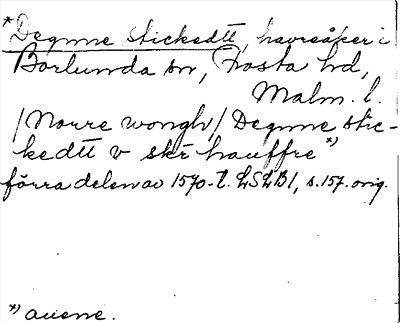 *Degnne stickedtt, havreåker i
Borlunda sn, Frosta hd,
Malm. l.
/Norre wongh/ Degnne stic-
kedtt v skr hauffre *)
förra delen av 1570-t. LSLB1, s.157. orig.
*) auene.